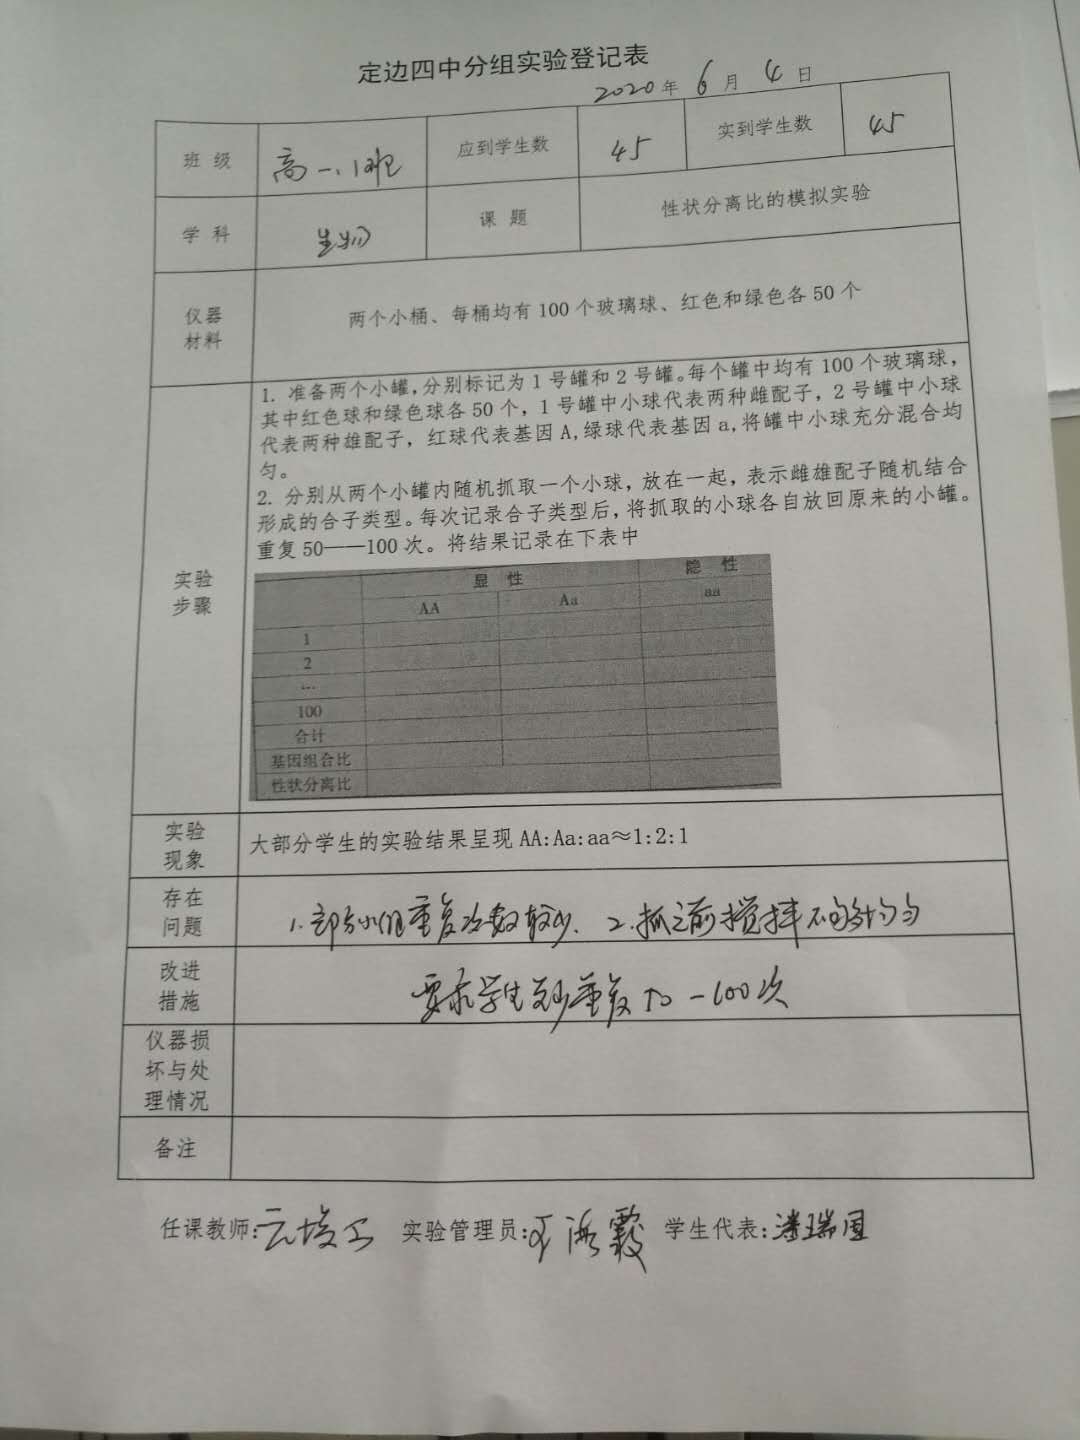 定边四中分组实验登记表
2020年 6月 4日
班 级 高一、1班 应到学生数 45 实到学生数 45
学 科 生物 课 题 性状分离比的模拟实验
仪器
材料
两个小桶、每桶均有 100 个玻璃球、红色和绿色各 50 个
1. 准备两个小罐,分别标记为 1 号罐和 2 号罐。每个罐中均有 100 个玻璃球，
其中红色球和绿色球各 50 个，1 号罐中小球代表两种雌配子，2 号罐中小球
代表两种雄配子，红球代表基因 A,绿球代表基因 a,将罐中小球充分混合均
匀。
2. 分别从两个小罐内随机抓取一个小球，放在一起，表示雌雄配子随机结合
形成的合子类型。每次记录合子类型后，将抓取的小球各自放回原来的小罐。
重复 50——100 次。将结果记录在下表中
实验
步骤
显 性 隐 性
AA Aa aa
1
2
…
100
合计
基因组合比
性状分离比
实验
现象
大部分学生的实验结果呈现 AA:Aa:aa≈1:2:1
存在
问题
1.部分小组重复次数较少、2.抓之前搅拌不够均匀
改进
措施
要求学生至少重复50-100次
仪器损
坏与处
理情况
备注
任课教师: 实验管理员: 学生代表:潘瑞国